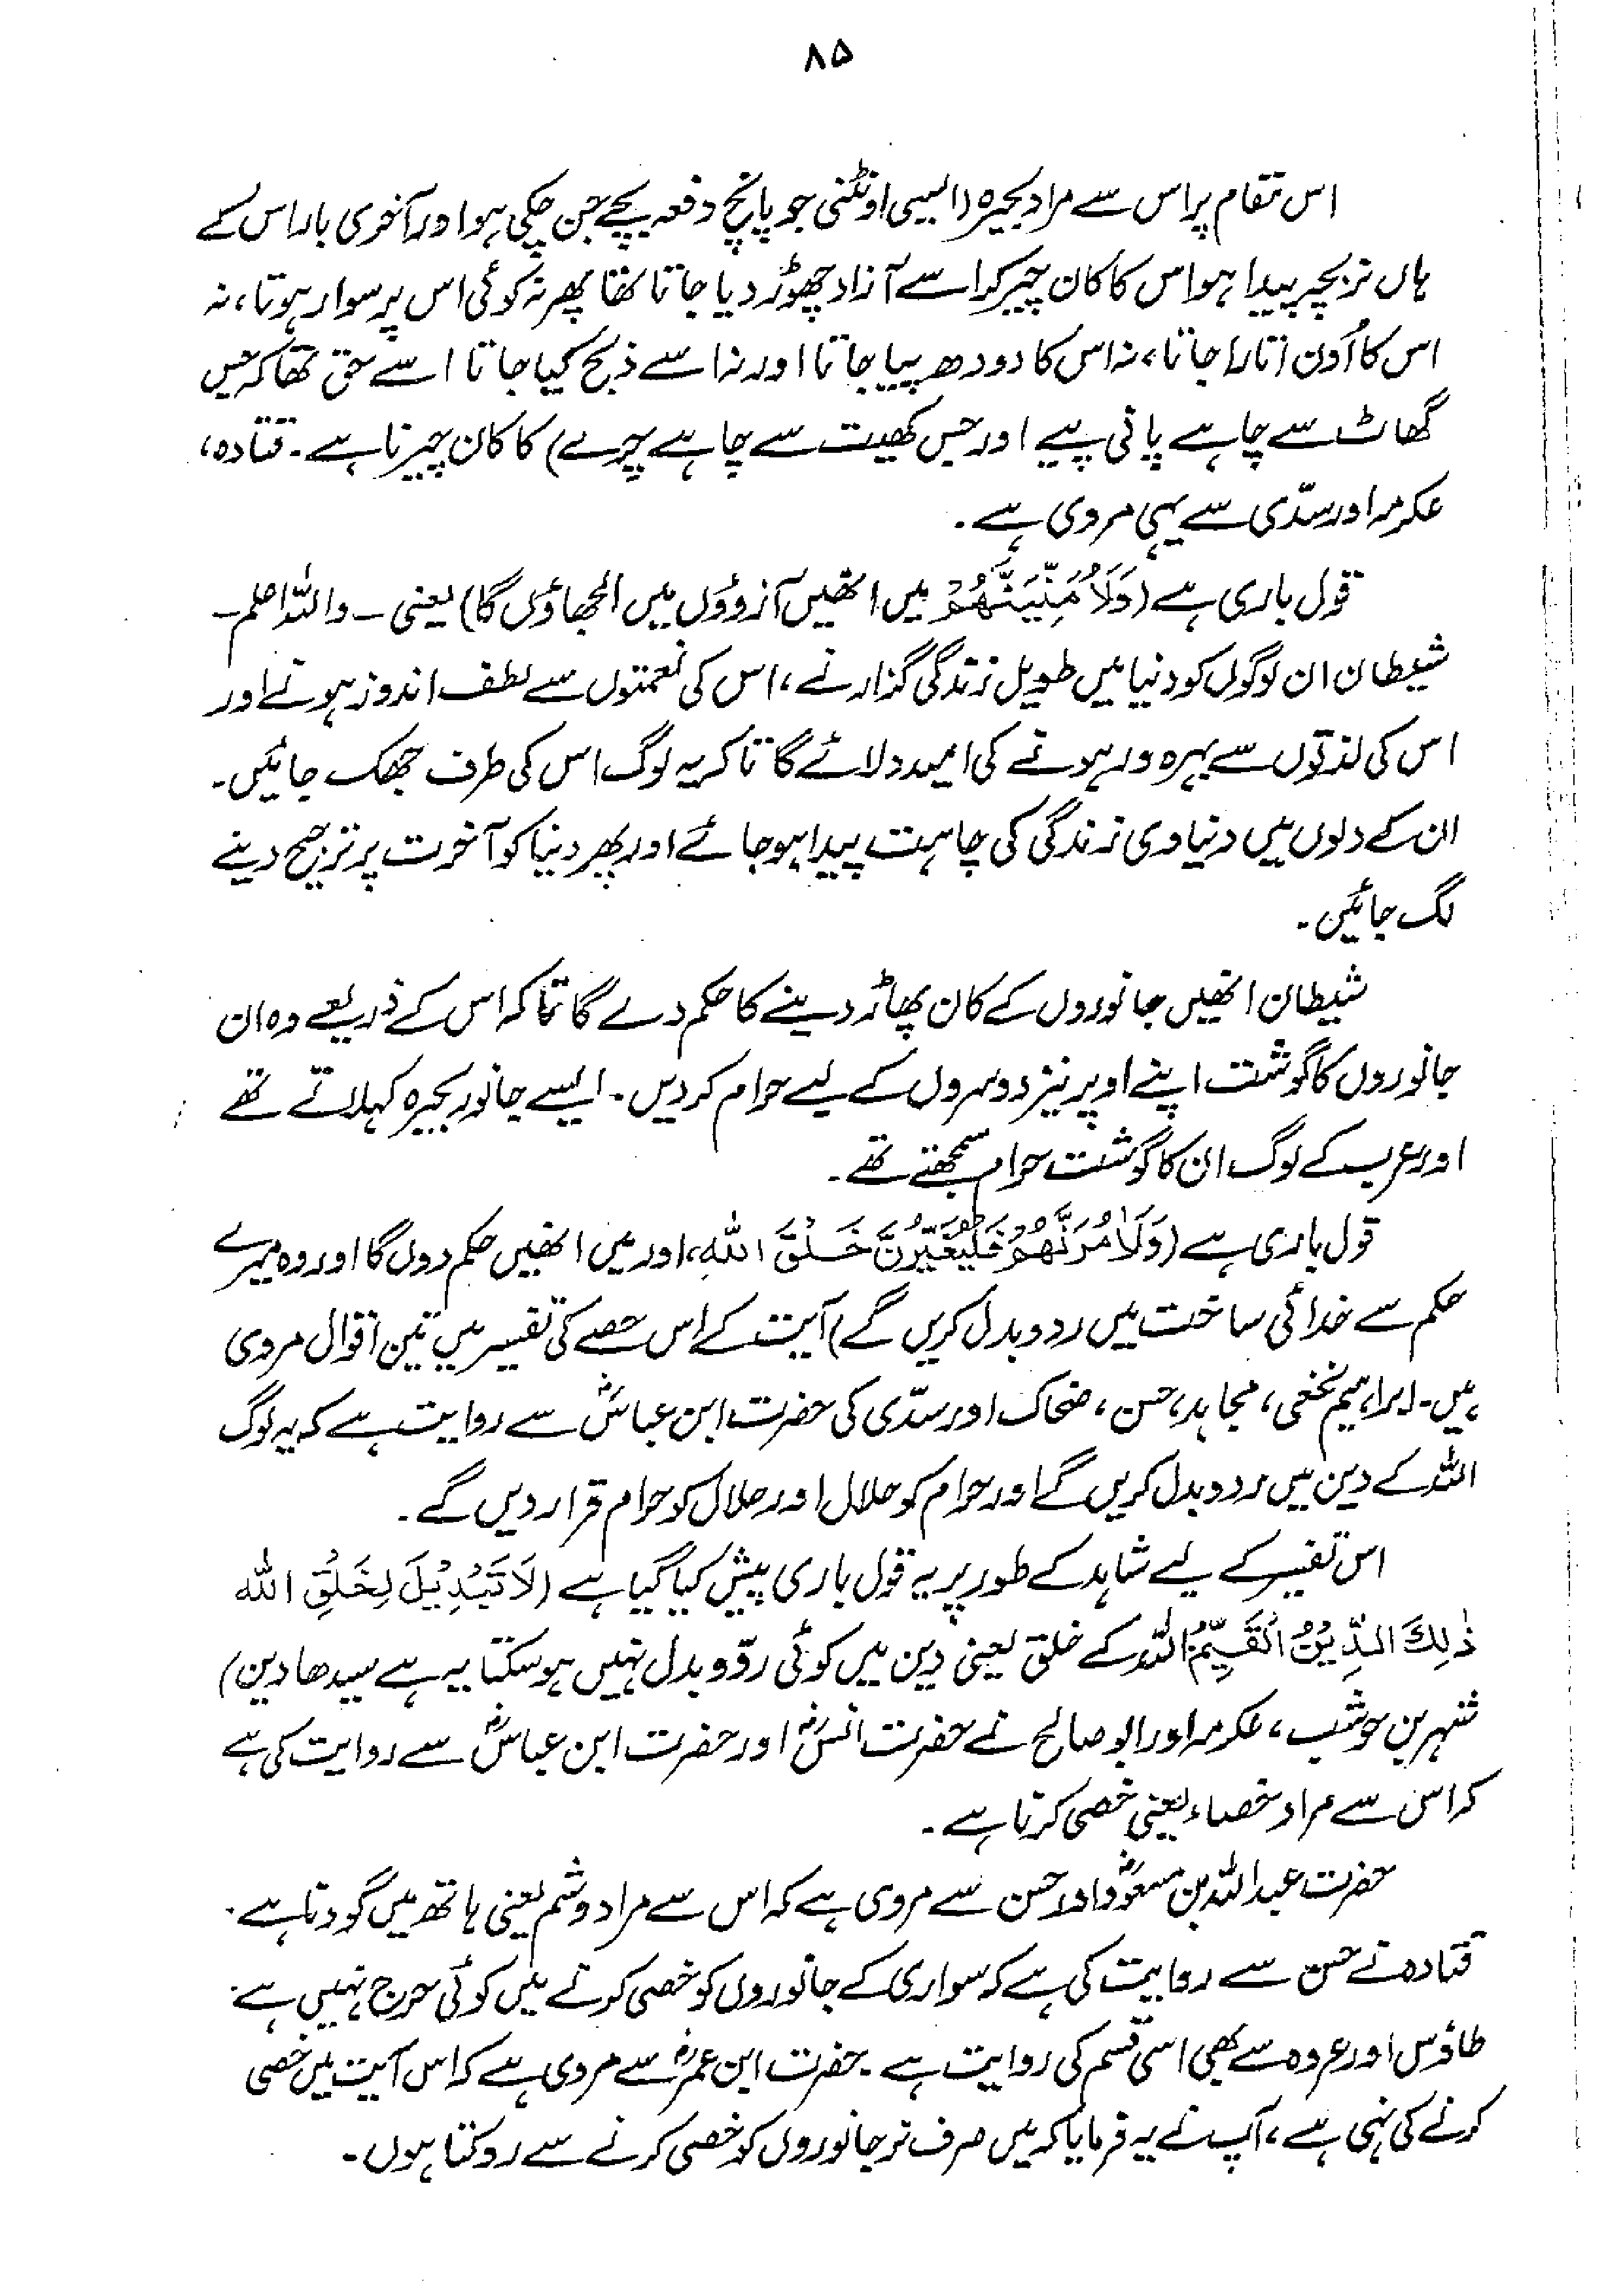 ۸۵
اس مقام پر اس سے مراد بحیرہ (ایسی اونٹنی جو پانچ دفعہ بچے جن چکی ہو اور آخری بار اس کے
ہاں نر بچہ پیدا ہو اس کا کان چیر کر اسے آزاد چھوڑ دیا جاتا تھا پھر نہ کوئی اس پر سوار ہوتا، نہ
اس کا اُون اتارا جاتا، نہ اس کا دودھ پیا جاتا اور نہ اسے ذبح کیا جاتا اسے حق تھا کہ جس
گھاٹ سے چاہے پانی پیے اور جس کھیت سے چاہے چرے) کا کان چیرنا ہے۔ قتادہ،
عکرمہ اور سدّی سے یہی مروی ہے۔
قول باری ہے (وَلَاُمَنِّیَنَّھُمْ میں انھیں آرزوؤں میں الجھاؤں گا) یعنی ـ واللہ اعلم ـ
شیطان ان لوگوں کو دنیا میں طویل زندگی گزارنے، اس کی نعمتوں سے لطف اندوز ہونے اور
اس کی لذتوں سے بہرہ ور ہونے کی امید دلائے گا تاکہ یہ لوگ اس کی طرف جھک جائیں۔
ان کے دلوں میں دنیاوی زندگی کی چاہت پیدا ہو جائے اور پھر دنیا کو آخرت پر ترجیح دینے
لگ جائیں۔
شیطان انھیں جانوروں کے کان پھاڑ دینے کا حکم دے گا تاکہ اس کے ذریعے وہ ان
جانوروں کا گوشت اپنے اوپر نیز دوسروں کے لیے حرام کر دیں۔ ایسے جانور بحیرہ کہلاتے تھے
اور عرب کے لوگ ان کا گوشت حرام سمجھتے تھے۔
قول باری ہے (وَلَاٰمُرَنَّھُمْ فَلَیُغَیِّرُنَّ خَلْقَ اللہِ، اور میں انھیں حکم دوں گا اور وہ میرے
حکم سے خدائی ساخت میں ردوبدل کریں گے) آیت کے اس حصے کی تفسیر میں تین اقوال مروی
ہیں۔ ابراہیم نخعی، مجاہد، حسن، ضحاک اور سدّی کی حضرت ابن عباسؓ سے روایت ہے کہ یہ لوگ
اللہ کے دین میں ردوبدل کریں گے اور حرام کو حلال اور حلال کو حرام قرار دیں گے۔
اس تفسیر کے لیے شاہد کے طور پر یہ قول باری پیش کیا گیا ہے (لَا تَبْدِیْلَ لِخَلْقِ اللہ
ذٰلِکَ الدِّیْنُ الْقَیِّمُ اللہ کے خلق یعنی دین میں کوئی ردّوبدل نہیں ہو سکتا یہ ہے سیدھا دین)
شہر بن حوشب، عکرمہ اور ابو صالح نے حضرت انسؓ اور حضرت ابن عباسؓ سے روایت کی ہے
کہ اس سے مراد خصاء یعنی خصی کرنا ہے۔
حضرت عبداللہ بن مسعودؓ اور حسن سے مروی ہے کہ اس سے مراد وشم یعنی ہاتھ میں گودنا ہے۔
قتادہ نے حسن سے روایت کی ہے کہ سواری کے جانوروں کو خصی کرنے میں کوئی حرج نہیں ہے۔
طاؤس اور عروہ سے بھی اسی قسم کی روایت ہے۔ حضرت ابن عمرؓ سے مروی ہے کہ اس آیت میں خصی
کرنے کی نہی ہے، آپ نے یہ فرمایا کہ میں صرف نر جانوروں کو خصی کرنے سے روکتا ہوں۔